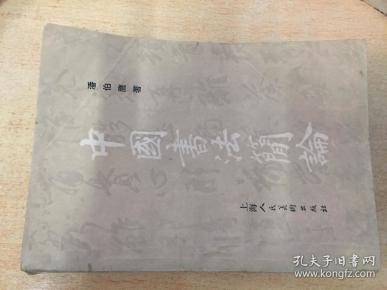 潘伯鹰著
中國書法簡論
上海人民美術出版社
孔夫子旧书网